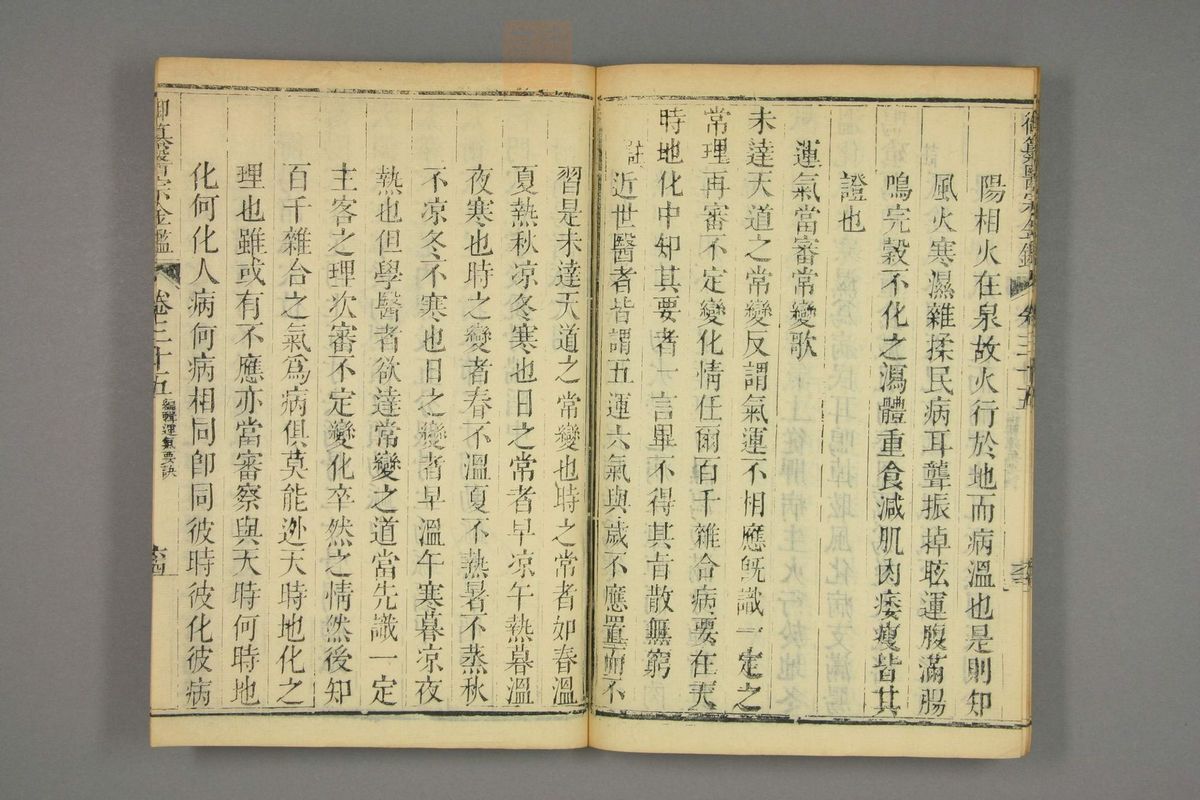 御纂醫宗金鑑
卷三十五
陽相火在泉故火行於地而病溫也是則知
風火寒濕雜揉民病耳聾振掉眩運腹滿腸
鳴完穀不化之瀉體重食減肌肉痿瘦皆其
證也
運氣當審常變歌
未達天道之常變反謂氣運不相應旣識一定之
常理再審不定變化情任爾百千雜合病要在天
時地化中知其要者一言畢不得其旨散無窮
註近世醫者皆謂五運六氣與歲不應置而不
習是未達天道之常變也時之常者如春溫
夏熱秋凉冬寒也日之常者早凉午熱暮溫
夜寒也時之變者春不溫夏不熱暑不蒸秋
不凉冬不寒也日之變者早溫午寒暮凉夜
熱也但學醫者欲達常變之道當先識一定
主客之理次審不定變化卒然之情然後知
百千雜合之氣爲病俱莫能迯天時地化之
理也雖或有不應亦當審察與天時何時地
化何化人病何病相同卽同彼時彼化彼病
御纂醫宗金鑑
卷三十五
編輯運氣要訣